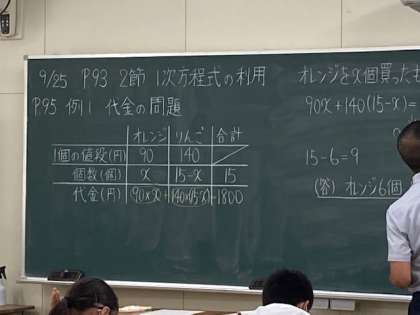 9/25 P.93 2節 1次方程式の利用
P.95 例1 代金の問題
オレンジ りんご 合計
1個の値段(円) 90 140
個数(個) x 15-x 15
代金(円) 90×x + 140×(15-x) = 1800
オレンジをx個買ったも
90x+140(15-x)=
15-6=9
(答) オレンジ6個